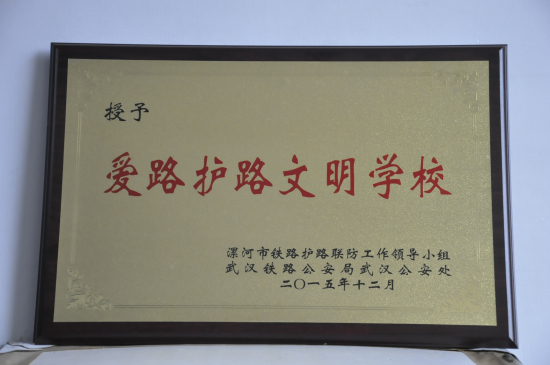 授予
爱路护路文明学校
漯河市铁路护路联防工作领导小组
武汉铁路公安局武汉公安处
二〇一五年十二月